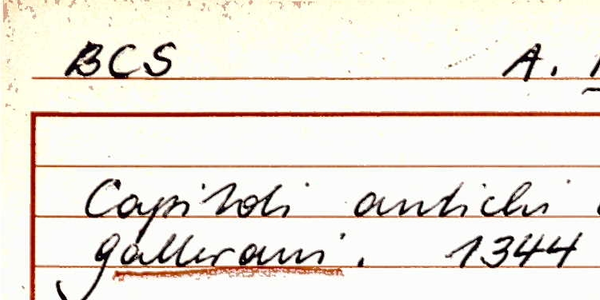 BCS A.
Capitoli antichi
gallerani. 1344